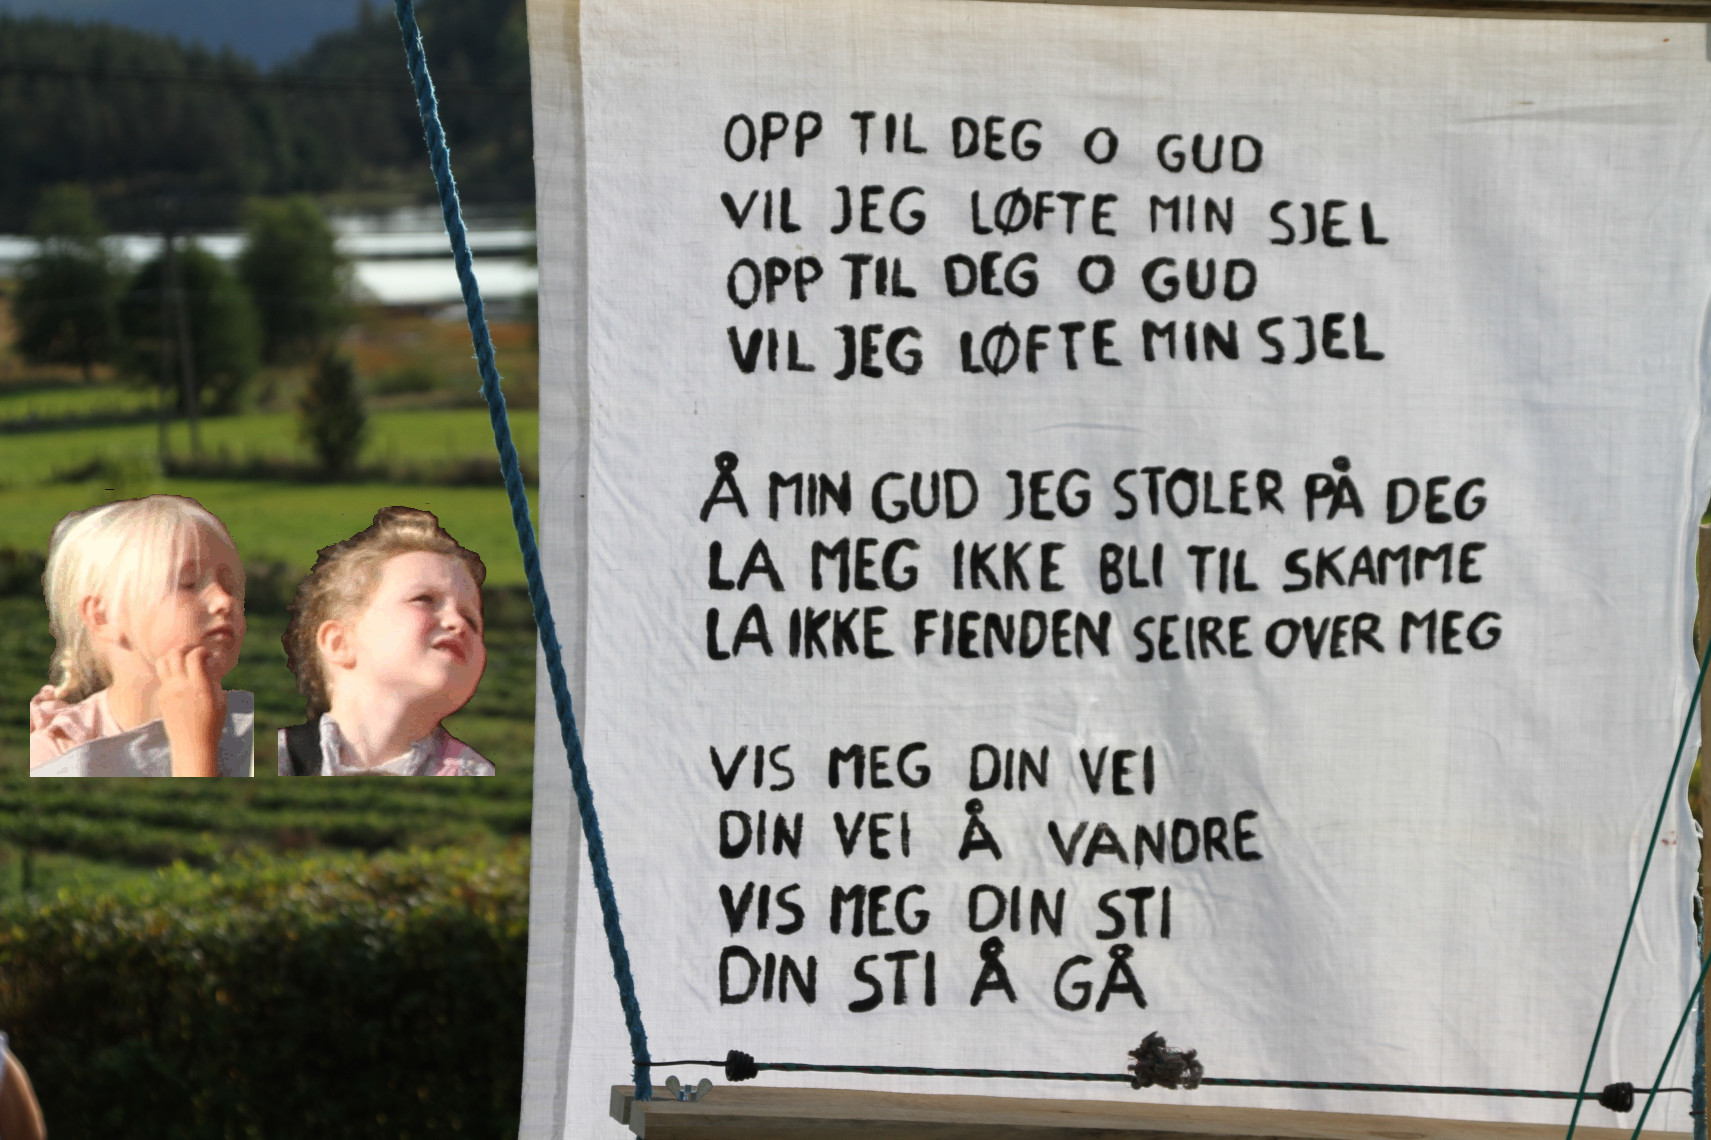 OPP TIL DEG O GUD
VIL JEG LØFTE MIN SJEL
OPP TIL DEG O GUD
VIL JEG LØFTE MIN SJEL
Å MIN GUD JEG STOLER PÅ DEG
LA MEG IKKE BLI TIL SKAMME
LA IKKE FIENDEN SEIRE OVER MEG
VIS MEG DIN VEI
DIN VEI Å VANDRE
VIS MEG DIN STI
DIN STI Å GÅ